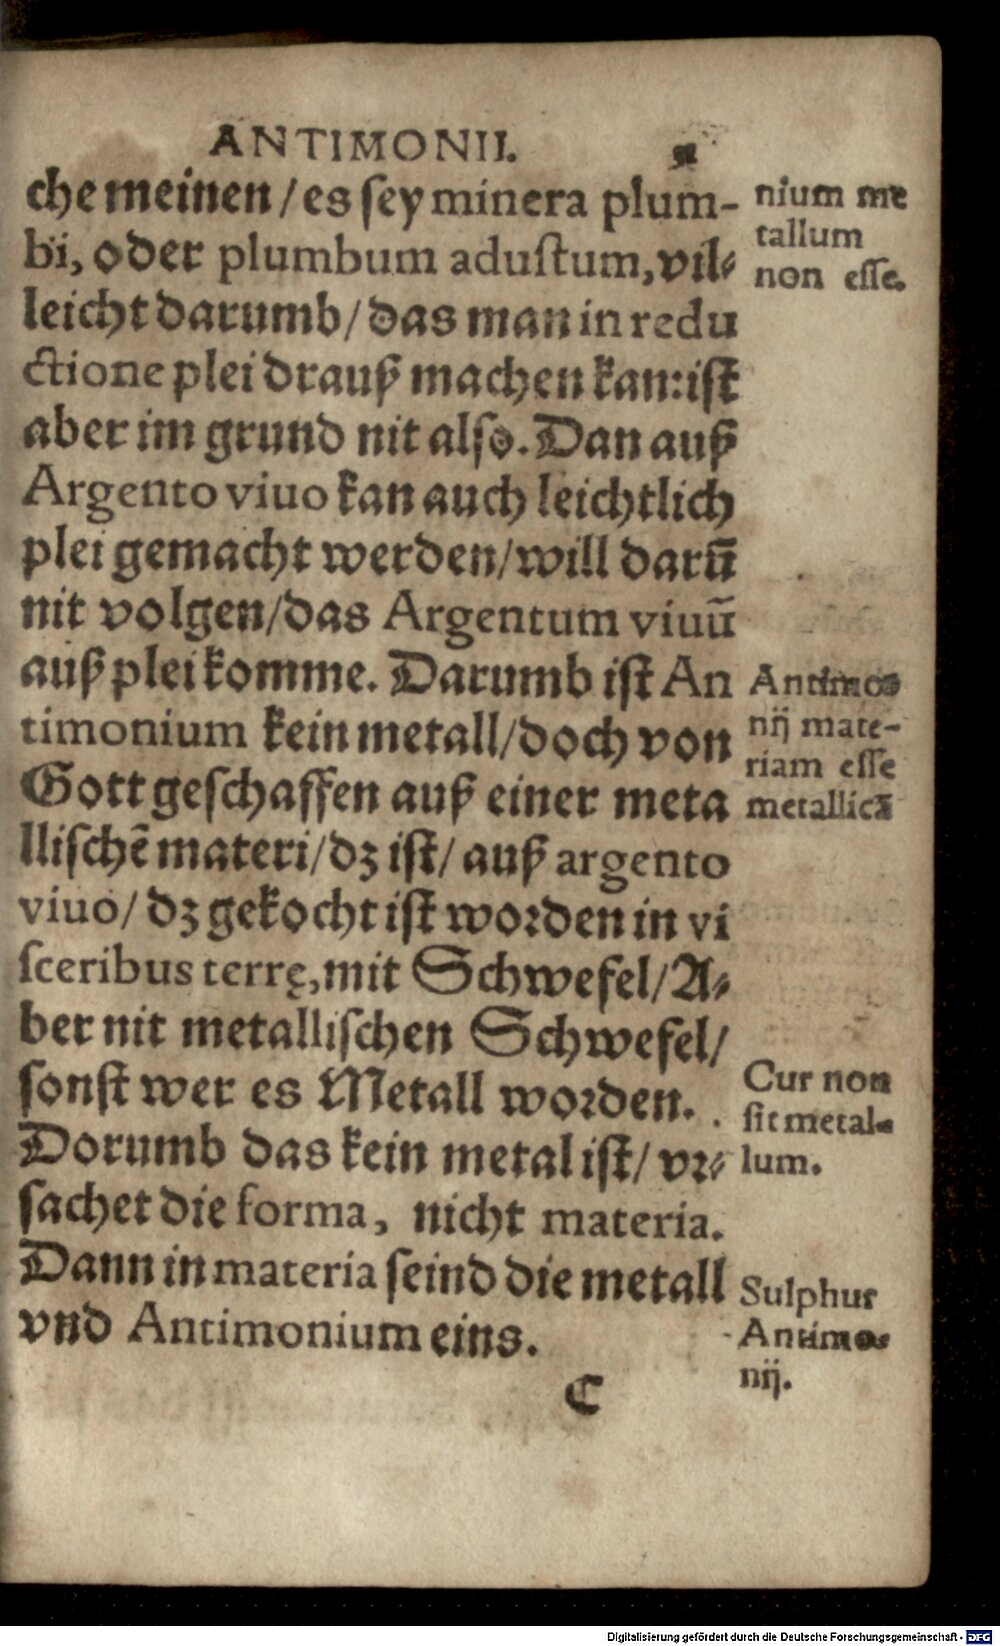 ANTIMONII.
che meinen / es sey minera plum-
bi, oder plumbum adustum, vil-
leicht darumb / das man in redu
ctione plei drauß machen kan: ist
aber im grund nit also. Dan auß
Argento viuo kan auch leichtlich
plei gemacht werden / will darũ
nit volgen / das Argentum viuũ
auß plei komme. Darumb ist An
timonium kein metall / doch von
Gott geschaffen auß einer meta
llischẽ materi / dz ist / auß argento
viuo / dz gekocht ist worden in vi
sceribus terrę, mit Schwefel / A-
ber nit metallischen Schwefel /
sonst wer es Metall worden.
Dorumb das kein metal ist / vr-
sachet die forma, nicht materia.
Dann in materia seind die metall
vnd Antimonium eins.
C
nium me
tallum
non esse.
Antimo-
nij mate-
riam esse
metallicã
Cur non
sit metal-
lum.
Sulphur
Antimo-
nij.
Digitalisierung gefördert durch die Deutsche Forschungsgemeinschaft - DFG